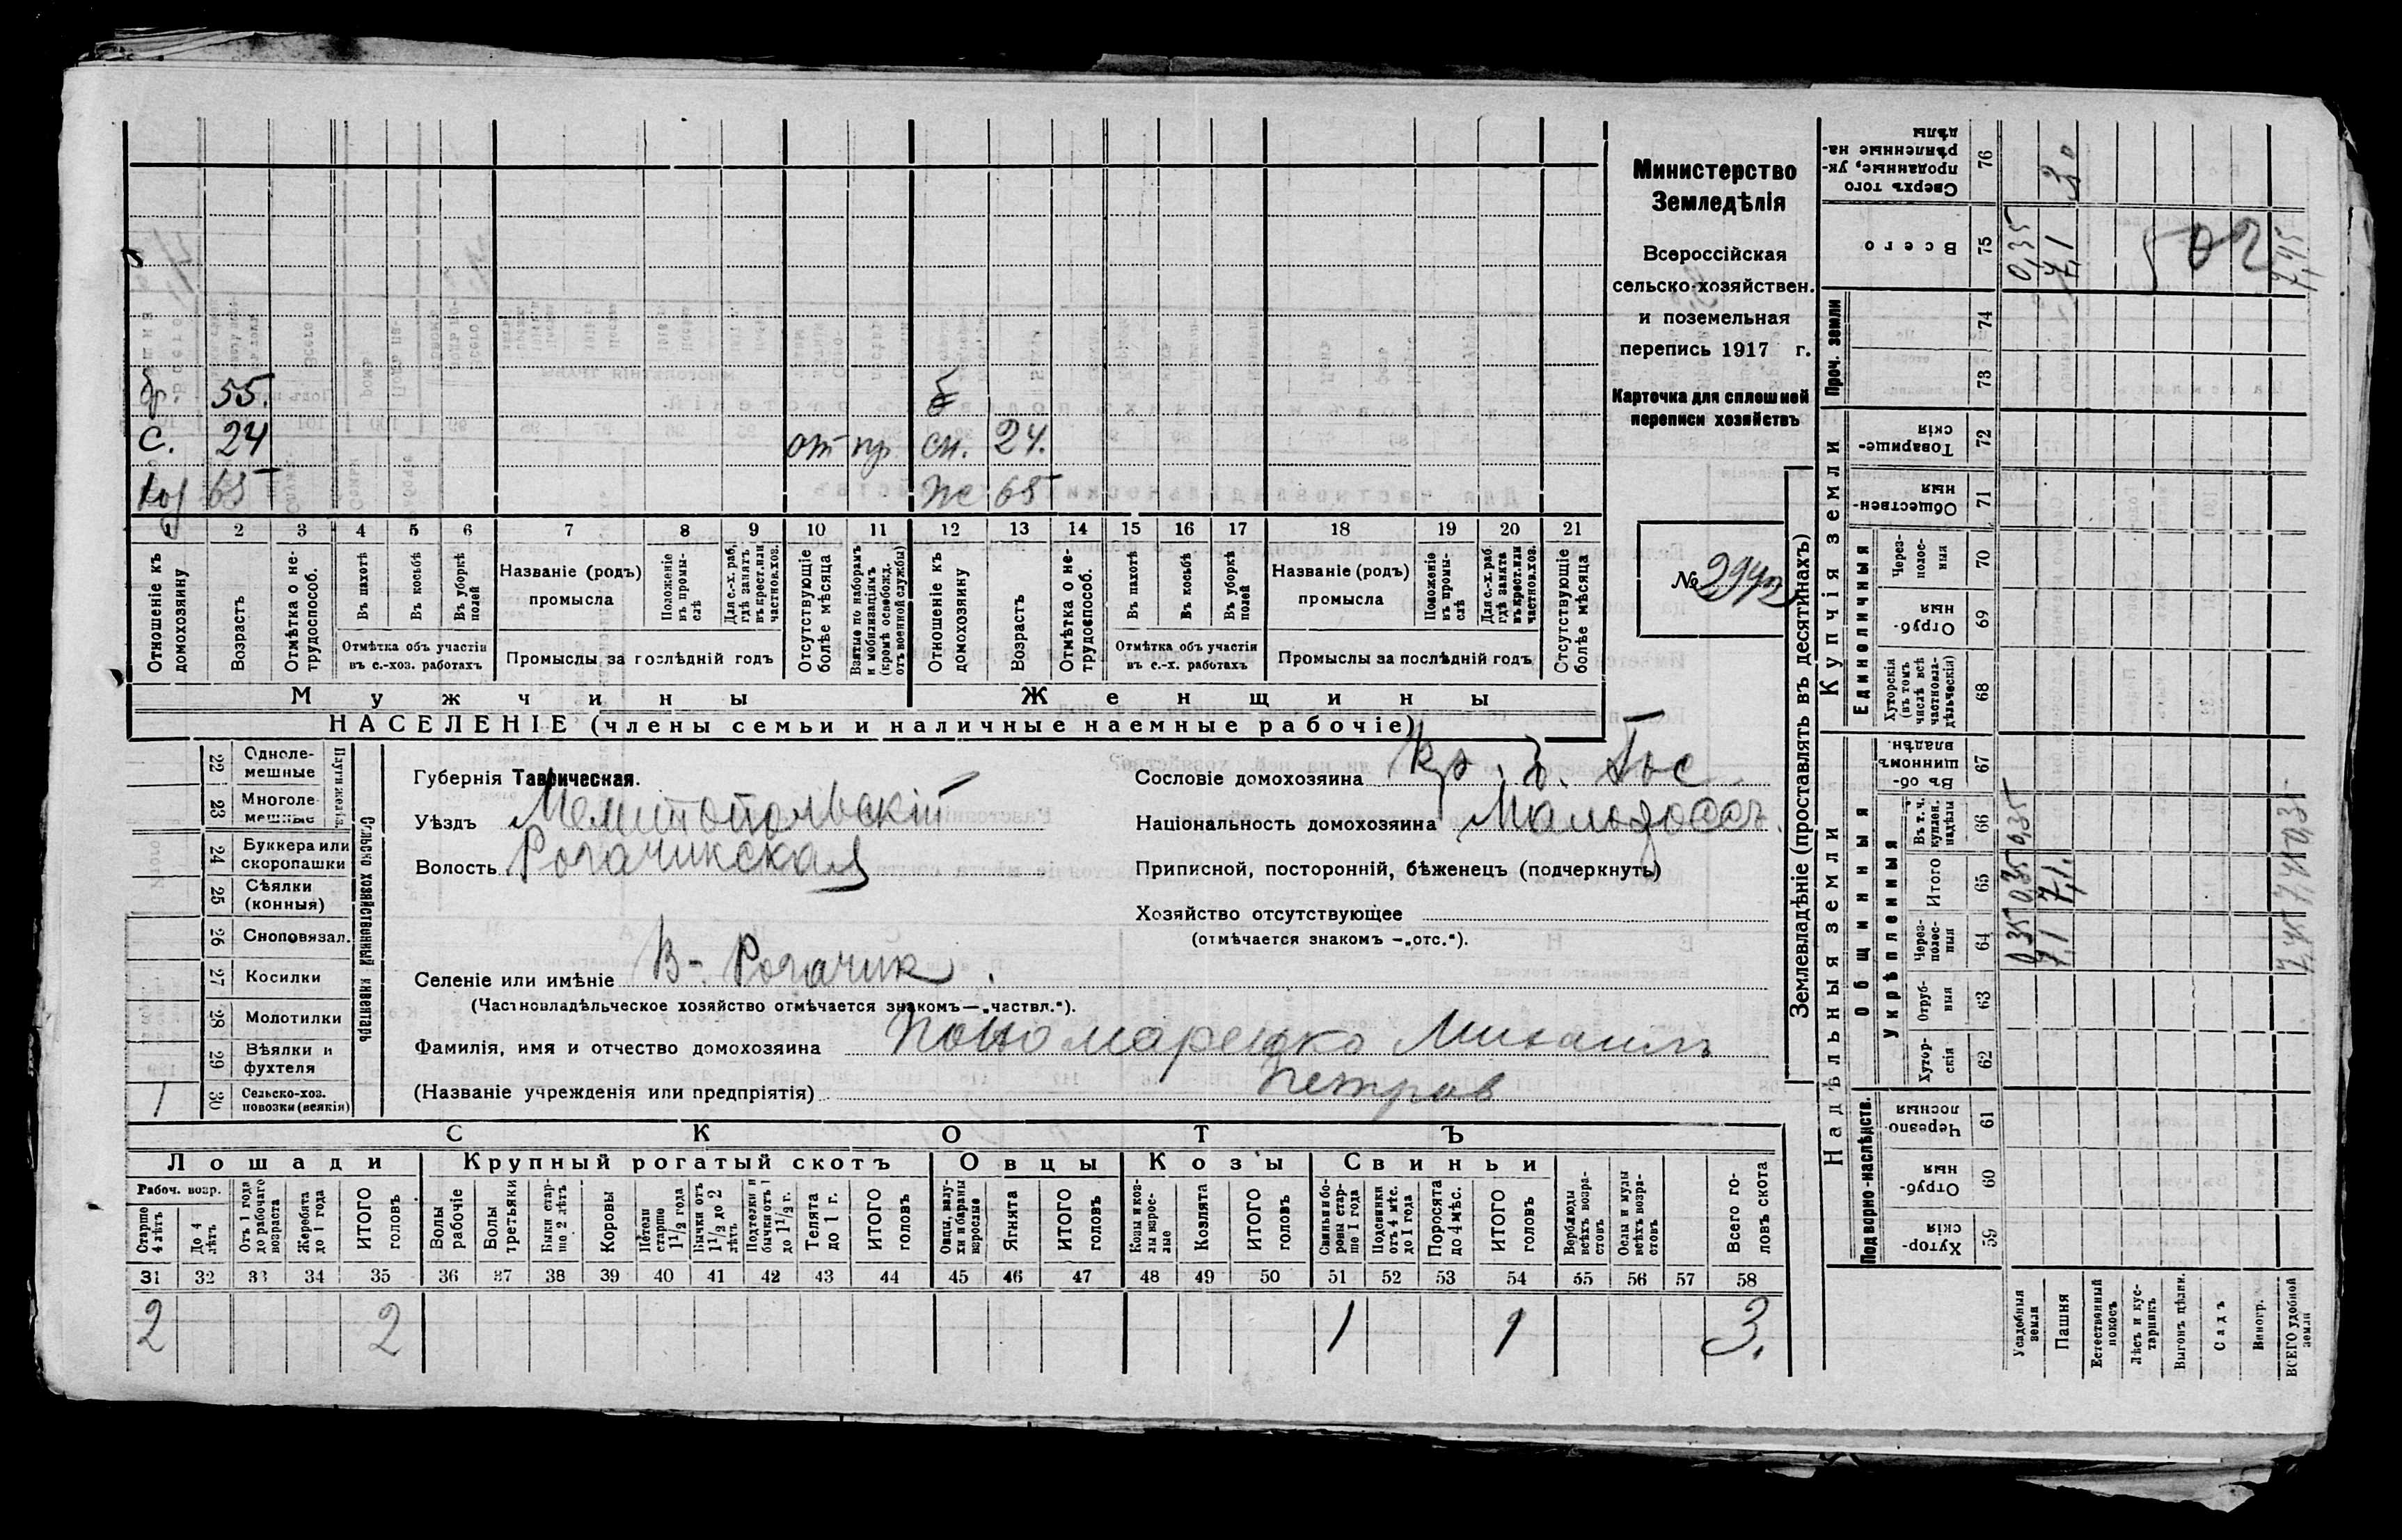 Министерство
Земледѣлія
Всероссійская
сельско-хозяйствен.
и поземельная
перепись 1917 г.
Карточка для сплошной
переписи хозяйствъ
№
бр. 55.
с. 24 от пр сн. 24.
65 же 65
1 2 3 4 5 6 7 8 9 10 11 12 13 14 15 16 17 18 19 20 21
Отношеніе къ домохозяину
Возрастъ
Отмѣтка о нетрудоспособ.
Въ пахотѣ
Въ косьбѣ
Въ уборкѣ полей
Отмѣтка объ участіи
въ с.-хоз. работахъ
Названіе (родъ)
промысла
Положеніе въ промыслѣ
Для с.-х. раб. гдѣ занятъ въ крест. или частнов. хоз.
Промыслы за послѣдній годъ
Отсутствующіе болѣе мѣсяца
Взятые по наборамъ и мобилизаціямъ (кромѣ освобожд. отъ военной службы)
Отношеніе къ домохозяину
Возрастъ
Отмѣтка о нетрудоспособ.
Въ пахотѣ
Въ косьбѣ
Въ уборкѣ полей
Отмѣтка объ участіи
въ с.-х. работахъ
Названіе (родъ)
промысла
Положеніе въ промыслѣ
Для с.-х. раб. гдѣ занята въ крест. или частнов. хоз.
Промыслы за послѣдній годъ
Отсутствующіе болѣе мѣсяца
Мужчины Женщины
НАСЕЛЕНІЕ (члены семьи и наличные наемные рабочіе)
Сельско хозяйственный инвентарь
22 Однолемешные
23 Многолемешные
24 Буккера или скоропашки
25 Сѣялки (конныя)
26 Сноповязал.
27 Косилки
28 Молотилки
29 Вѣялки и фухтеля
30 Сельско-хоз. повозки (всякія) 1
Губернія Таврическая.
Уѣздъ Мелитопольскій
Волость Рогачикская
Селеніе или имѣніе В-Рогачик.
(Частновладѣльческое хозяйство отмѣчается знакомъ—„частвл.“).
Фамилія, имя и отчество домохозяина Пономаренко Михаилъ
(Названіе учрежденія или предпріятія) Петров
Сословіе домохозяина кр.
Національность домохозяина Малоросъ.
Приписной, посторонній, бѣженецъ (подчеркнуть)
Хозяйство отсутствующее
(отмѣчается знакомъ —„отс.“).
СКОТЪ
Лошади Крупный рогатый скотъ Овцы Козы Свиньи
Рабоч. возр.
Старше 4 лѣтъ
До 4 лѣтъ
Отъ 1 года до рабочаго возраста
Жеребята до 1 года
ИТОГО головъ
Волы рабочіе
Волы третьяки
Быки старше 2 лѣтъ
Коровы
Нетели старше 1 1/2 года
Бычки отъ 1 1/2 до 2 лѣтъ
Подтелки и бычки отъ 1 до 1 1/2 г.
Телята до 1 г.
ИТОГО головъ
Овцы, валухи и бараны взрослые
Ягнята
ИТОГО головъ
Козы и козлы взрослые
Козлята
ИТОГО головъ
Свиньи и боровы старше 1 года
Подсвинки отъ 4 мѣс. до 1 года
Поросята до 4 мѣс.
ИТОГО головъ
Верблюды всѣхъ возрастовъ
Ослы и мулы всѣхъ возрастовъ
Всего головъ скота
31 32 33 34 35 36 37 38 39 40 41 42 43 44 45 46 47 48 49 50 51 52 53 54 55 56 57 58
2 2 1 1 3.
Землевладѣніе (проставлять въ десятинахъ)
Надѣльныя земли
Купчія земли
Проч. земли
Подворно-наслѣдств.
Общинныя
Укрѣпленныя
Единоличныя
Хуторскія 59
Отрубныя 60
Черезполосныя 61
Хуторскія 62
Отрубныя 63
Черезполосныя 64
Итого 65
Въ т. ч. куплен. надѣлы 66
Въ общинномъ владѣн. 67
Хуторскія (въ томъ числѣ всѣ частновладѣльческія) 68
Отрубныя 69
Черезполосныя 70
Общественныя 71
Товарищескія 72
73
74
Всего 75
Сверхъ того проданные, укрѣпленные надѣлы 76
Усадебныя земли 0,35 0,35 0,35 0,35
Пашня 7,1 7,1. 7,1
Естественный покосъ
Лѣсъ и кустарникъ
Выгонъ цѣлин.
Садъ
Виногр.
ВСЕГО удобной земли 7,45 7,45
502